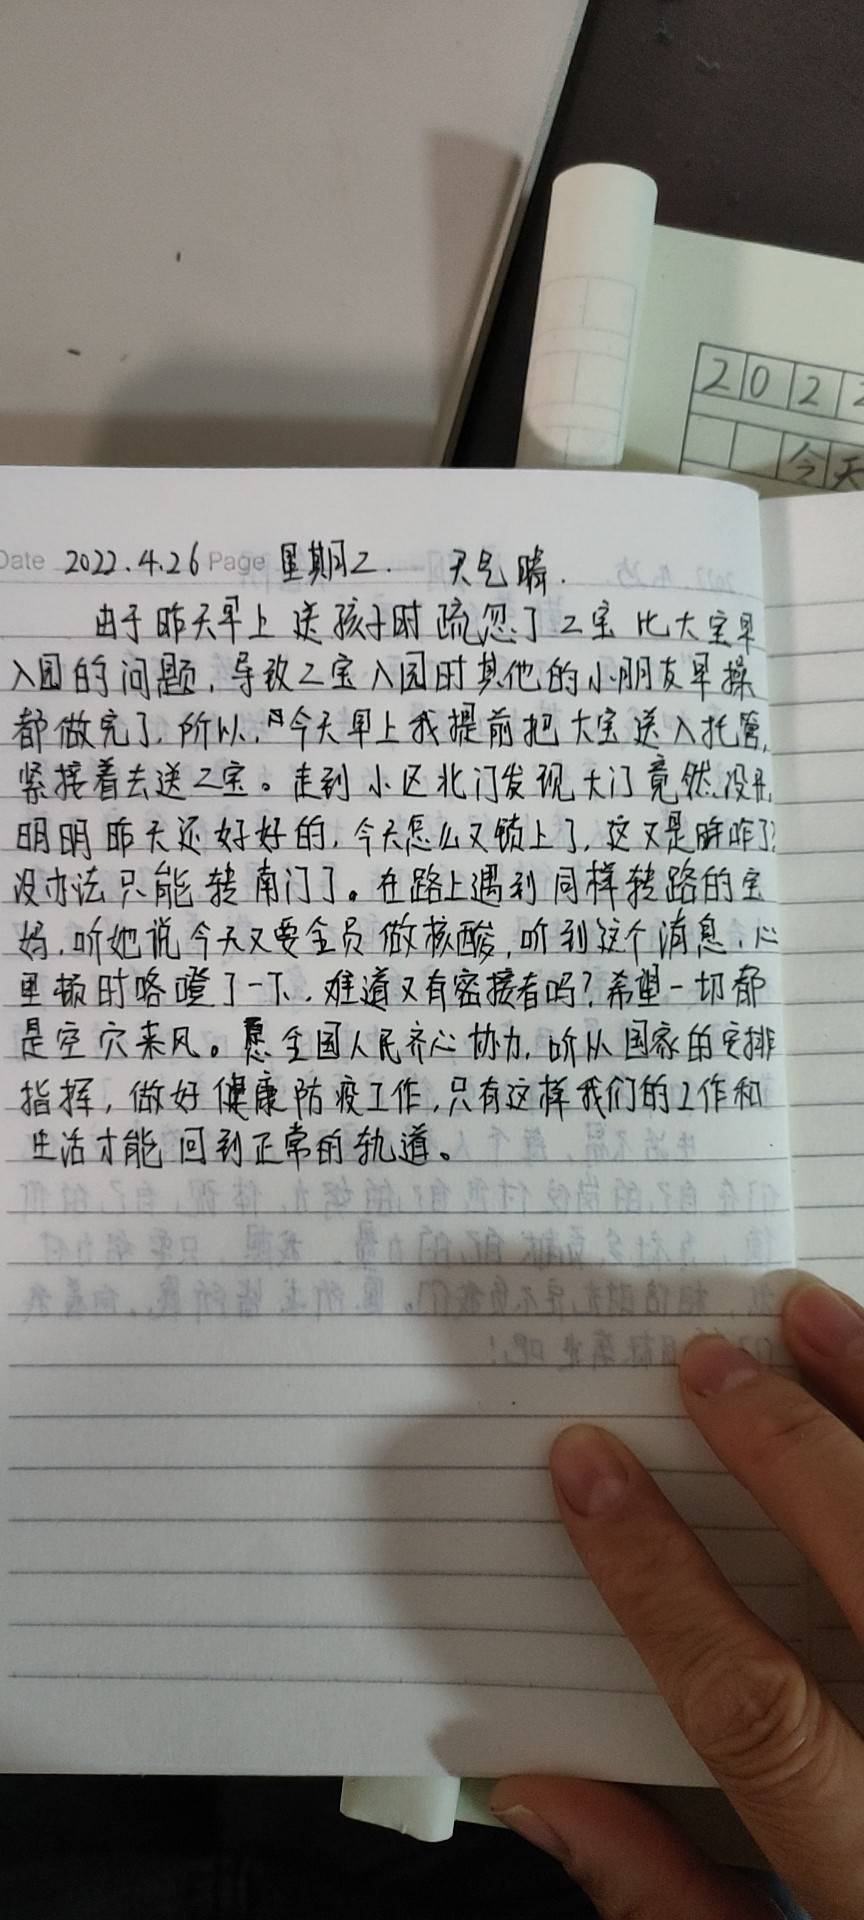 2022
今天
Date 2022.4.26 Page 星期二. 天气晴.
由于昨天早上送孩子时疏忽了二宝比大宝早
入园的问题,导致二宝入园时其他的小朋友早操
都做完了.所以,今天早上我提前把大宝送入托管,
紧接着去送二宝。走到小区北门发现大门竟然没开,
明明昨天还好好的,今天怎么又锁上了,这又是咋了?
没办法只能转南门了。在路上遇到同样转路的宝
妈,听她说今天又要全员做核酸,听到这个消息,心
里顿时咯噔了一下,难道又有密接者吗?希望一切都
是空穴来风。愿全国人民齐心协力,听从国家的安排
指挥,做好健康防疫工作,只有这样我们的工作和
生活才能回到正常的轨道。